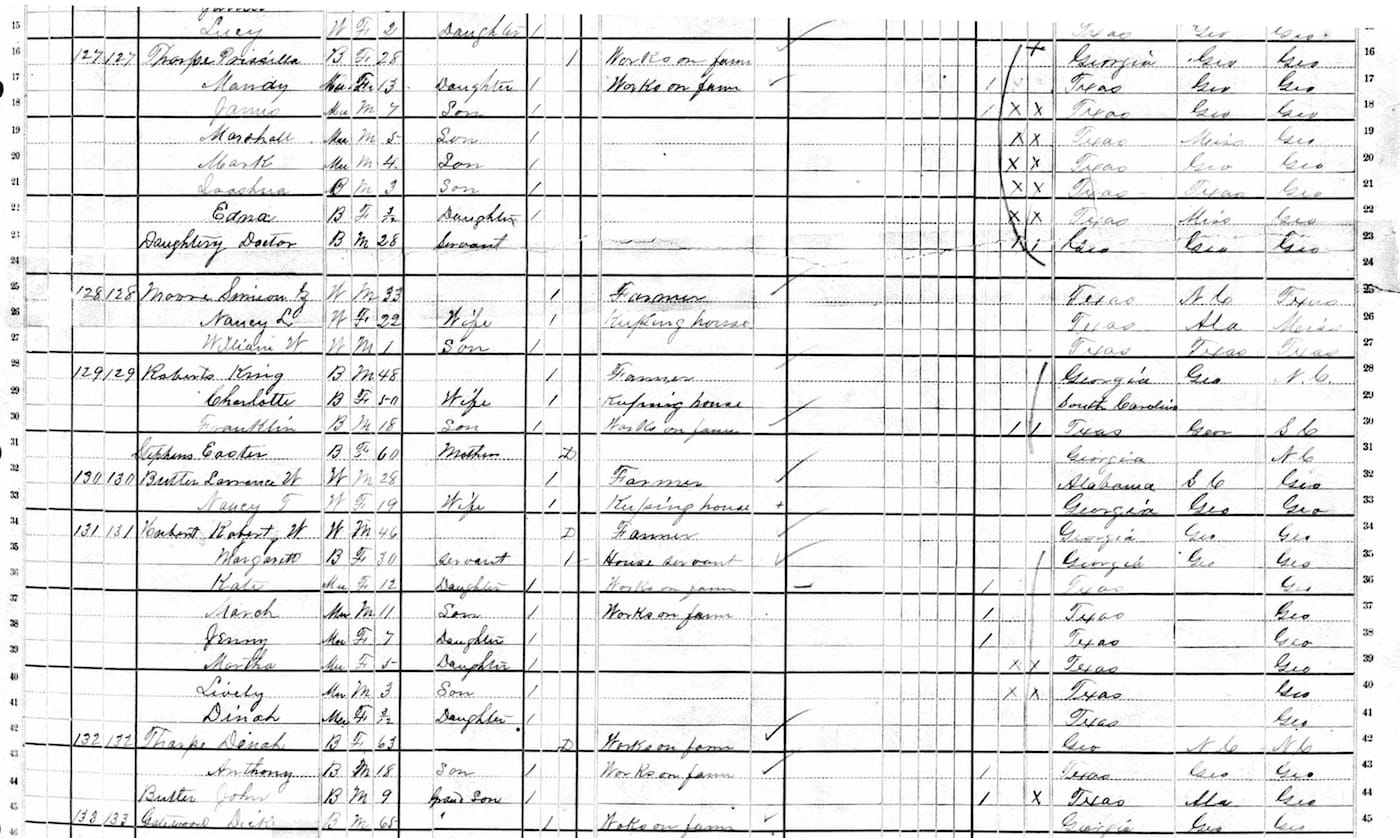 15 Lucy W F 2 Daughter / Texas Geo Geo 15
16 127 127 Thorpe Priscilla B F 28 / Works on farm Georgia Geo Geo 16
17 Mandy Mu F 13 Daughter / Works on farm / Texas Geo Geo 17
18 James Mu M 7 Son / / X X Texas Geo Geo 18
19 Marshall Mu M 5 Son / X X Texas Miss Geo 19
20 Mark Mu M 4 Son / X X Texas Geo Geo 20
21 B M 3 Son / X X Texas Texas Geo 21
22 Edna B F Daughter / X X Texas Miss Geo 22
23 Daughtery Doctor B M 28 Servant / / Geo Geo Geo 23
24 24
25 128 128 Moore Simeon W M 33 / Farmer Texas N C Texas 25
26 Nancy L W F 22 Wife / Keeping house Texas Ala Miss 26
27 William W W M 1 Son / Texas Texas Texas 27
28 129 129 Roberts King B M 48 / Farmer Georgia Geo N.C. 28
29 Charlotte B F 50 Wife / Keeping house South Carolina 29
30 Franklin B M 18 Son / Works on farm / / Texas Geor S C 30
31 Stephens Easter B F 60 Mother D Georgia N C 31
32 130 130 Butler Lawrence W W M 28 / Farmer Alabama S C Geo 32
33 Nancy T W F 19 Wife / Keeping house + Georgia Geo Geo 33
34 131 131 Robert W W M 46 D Farmer Georgia Geo Geo 34
35 Margarett B F 30 Servant / House servant Georgia Geo Geo 35
36 Kate Mu F 12 Daughter / Works on farm / Texas Geo 36
37 March Mu M 11 Son / Works on farm / Texas Geo 37
38 Jenny Mu F 7 Daughter / / Texas Geo 38
39 Martha Mu F 5 Daughter / X X Texas Geo 39
40 Lively Mu M 3 Son / X X Texas Geo 40
41 Dinah Mu F Daughter / Texas Geo 41
42 132 132 Tharpe Dinah B F 63 D Works on farm Geo N C N C 42
43 Anthony B M 18 Son / Works on farm / Texas Geo Geo 43
44 Butler John B M 9 Grand Son / / X Texas Ala Geo 44
45 133 133 Gatewood Dick B M 65 / Woks on farm Georgia Geo Geo 45
46